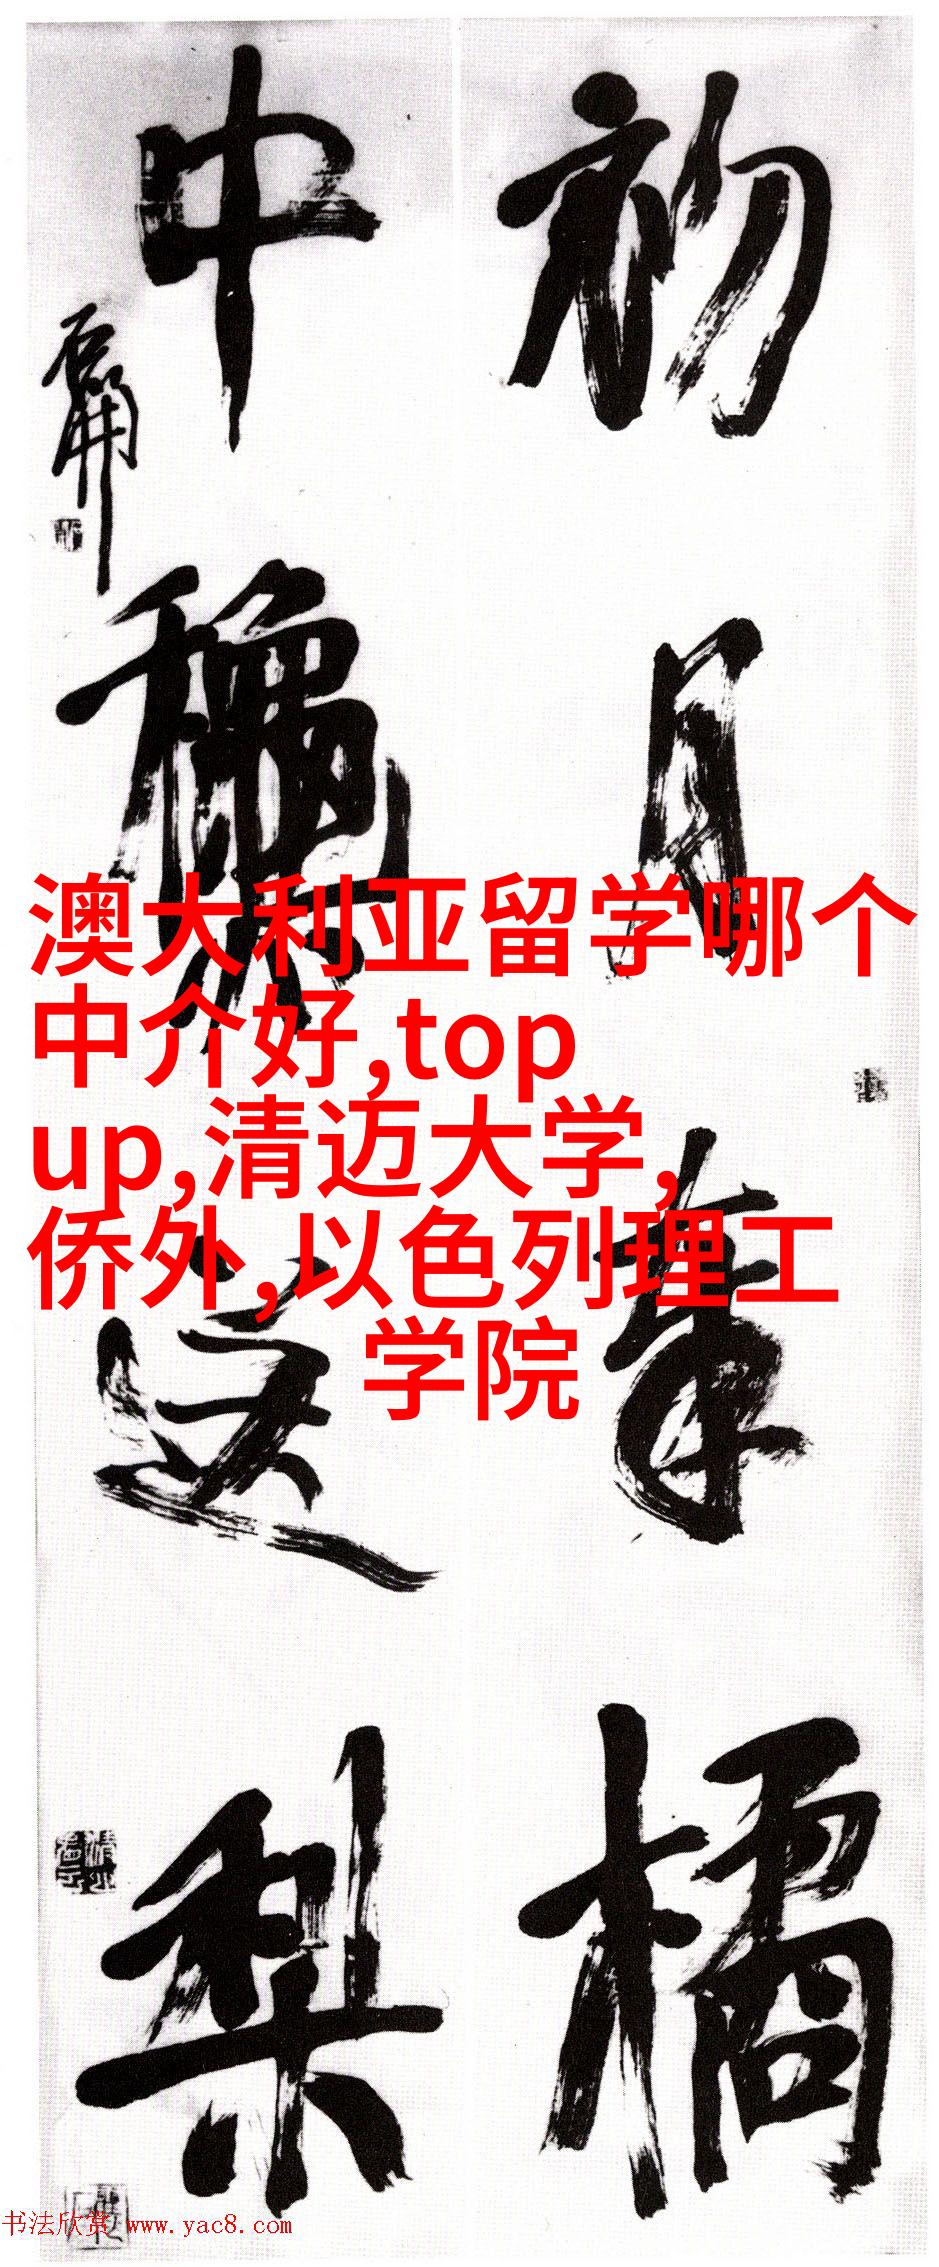 初月奉橘
中穐送梨
石開
澳大利亚留学哪个
中介好,top
up,清迈大学,
侨外,以色列理工
学院
书法欣赏 www.yac8.com